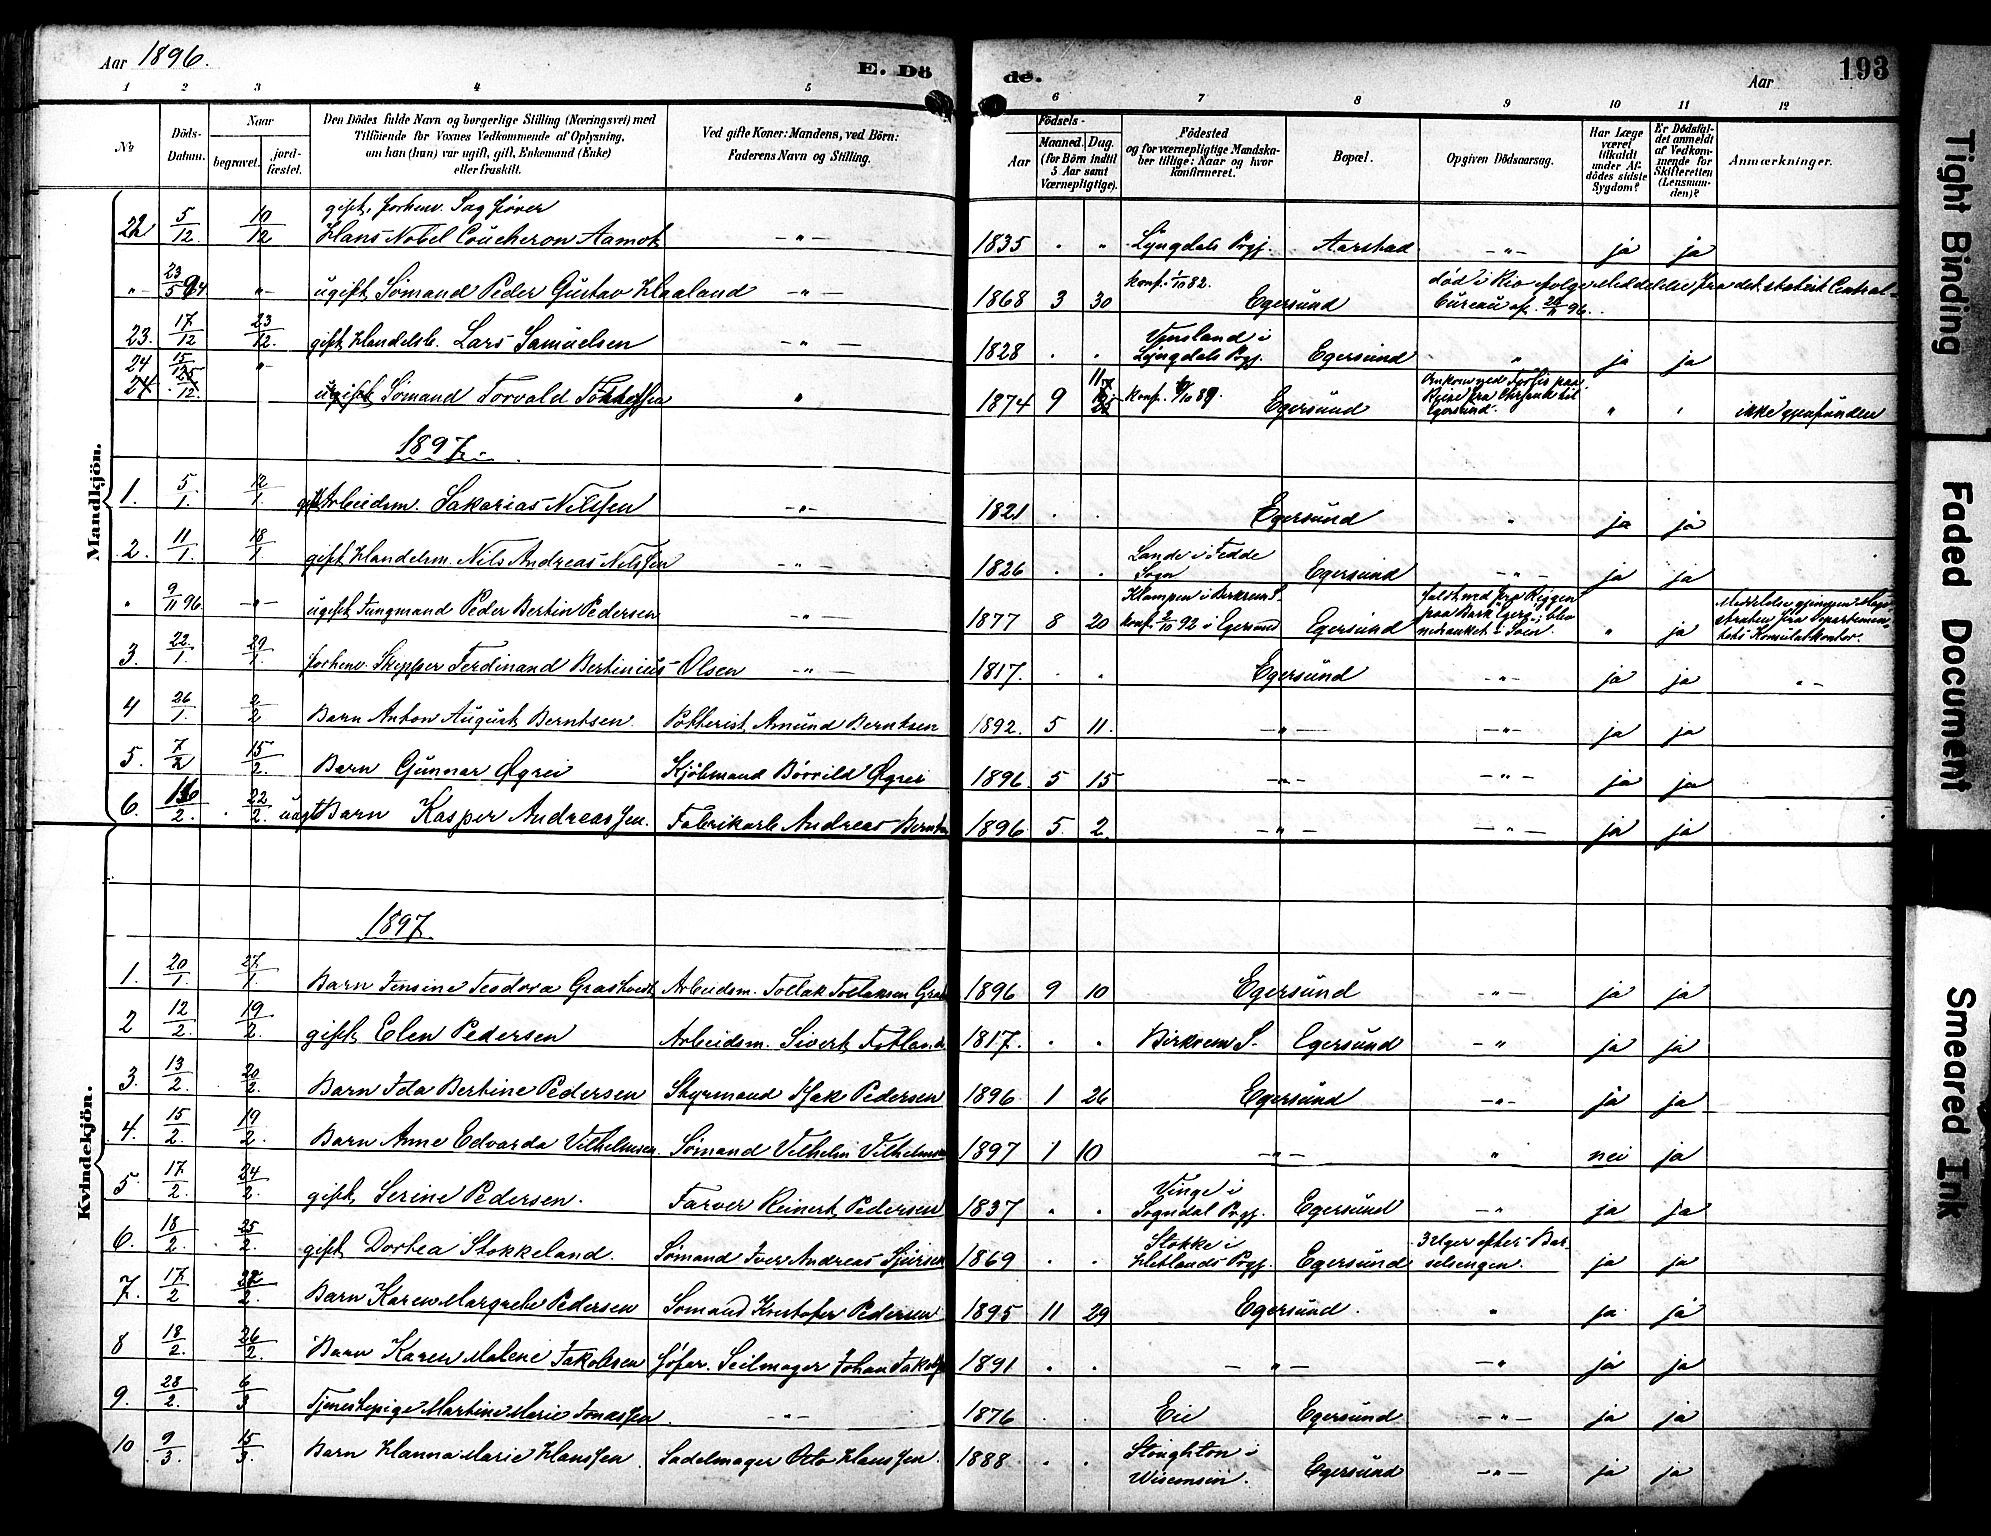 Aar 1896.
E. Dö
de.
Aar
193
1 2 3 4 5 6 7 8 9 10 11 12
No
Döds-Datum.
Naar
begravet.
jord-fæstet.
Den Dödes fulde Navn og borgerlige Stilling (Næringsvei) med
Tilföiende for Voxnes Vedkommende af Oplysning,
om han (hun) var ugift, gift, Enkemand (Enke)
eller fraskilt.
Ved gifte Koner: Mandens, ved Börn:
Faderens Navn og Stilling.
Födsels-
Aar
Maaned.
Dag.
(for Börn indtil
5 Aar samt
Værnepligtige).
Födested
og for værnepligtige Mandska-
ber tillige: Naar og hvor
konfirmeret.
Bopæl.
Opgiven Dödsaarsag.
Har Læge
været
tilkaldt
under Af-
dödes sidste
Sygdom?
Er Dödsfal-
det anmeldt
af Vedkom-
mende for
Skifteretten
(Lensman-
den)?
Anmærkninger.
Mandkjön.
22 5/12 10/12 gift, forhenv. Sagfører
Hans Nobel Coucheron Aamot -"- 1835 " " Lyngdals Prgj. Aarstad -"- ja ja
" 23/5 94 " ugift Sømand Peder Gustav Haaland -"- 1868 3 30 konf. 1/10 82. Egersund død i Rio ifølge Meddelelse fra det statist. Central-
Bureau af 28/11 96.
23. 17/12 23/12 gift Handelsb. Lars Samuelsen -"- 1828 . . Lyngdals Prgj. Egersund " ja ja
24 15/12 " ugift Sømand Torvald 1874 9 konf. 89. Egersund Omkom ved Forlis paa
Reise fra til
Egersund. " " ikke gjenfunden
1897
1. 5/1 12/1 gift Arbeidsm. Sakarias Nilssen -"- 1821 . . Egersund " ja ja
2. 11/1 18/1 gift Handelsm. Nils Andreas Nilssen -"- 1826 . . Lande i Fedde
Sogn Egersund -"- ja ja
" 9/11 96 -"- ugift Jungmand Peder Bertin Pedersen -"- 1877 8 20 Klampen i Birkrem S.
konf. 2/10 92 i Egersund Egersund faldt ned fra Riggen
paa Bark "Egerø", blev
" ja Meddelelse gjennem Magi-
straten fra Departemen-
tets Konsulatkontor.
3. 22/1 29/1 forhenv. Skipper Ferdinand Bertinius Olsen -"- 1817. . . Egersund -"- ja ja -"-
4 26/1 2/2 Barn Anton August Berntsen. Potterist Amund Berntsen 1892. 5 11. -"- -"- ja ja
5. 7/2 15/2 Barn Gunnar Øgrei Kjøbmand Børrild Øgrei 1896 5 15 -"- -"- ja ja
6. 16/2 22/2 Barn Kasper Andreassen. Fabrikarb. Andreas 1896 5. 2. -"- -"- ja ja
Kvindekjön.
1897
1. 20/1 27/1 Barn Jensine Teodora Grastveit Arbeidsm. Tollak Tollaksen 1896 9 10 Egersund -"- ja ja
2 12/2 19/2 gift Elen Pedersen Arbeidsm. Sivert Fotland 1817. . . Birkrem S. Egersund -"- ja ja
3. 13/2 20/2 Barn Ida Bertine Pedersen Styrmand Isak Pedersen 1896 1 26 Egersund -"- ja ja
4. 15/2 19/2 Barn Anne Edvarda Vilhelmsen. Sømand Vilhelm Vilhelmsen 1897 1 10 -"- " nei ja
5 17/2 24/2 gift Serine Pedersen. Farver Reinert Pedersen 1837 . . Vinge i
Sogndal Prgj. Egersund -"- ja ja
6. 18/2 25/2 gift Dortea Stokkeland. Sømand Iver Andreas 1869 . . Stokke i
Hetlands Prgj. Egersund 3 Uger efter Bar-
selsengen. ja ja
7. 17/2 Barn Karen Margrete Pedersen Sømand Kristofer Pedersen 1895 11 29 Egersund. " ja ja
8 18/2 26/2 Barn Karen Malene Jakobsen Seilmager Johan 1891 . . -"- -"- ja ja
9. 28/2 6/3 Tjenestepige Martine Marie Jonassen. -"- 1876 . . Eie Egersund -"- ja ja
10 9/3 15/3 Barn Hanna Marie Hanssen. Sadelmager Otto Hanssen. 1888 . . Stoughton i
Wisconsin. Egersund -"- ja ja
Tight Binding
Faded Document
Smeared Ink